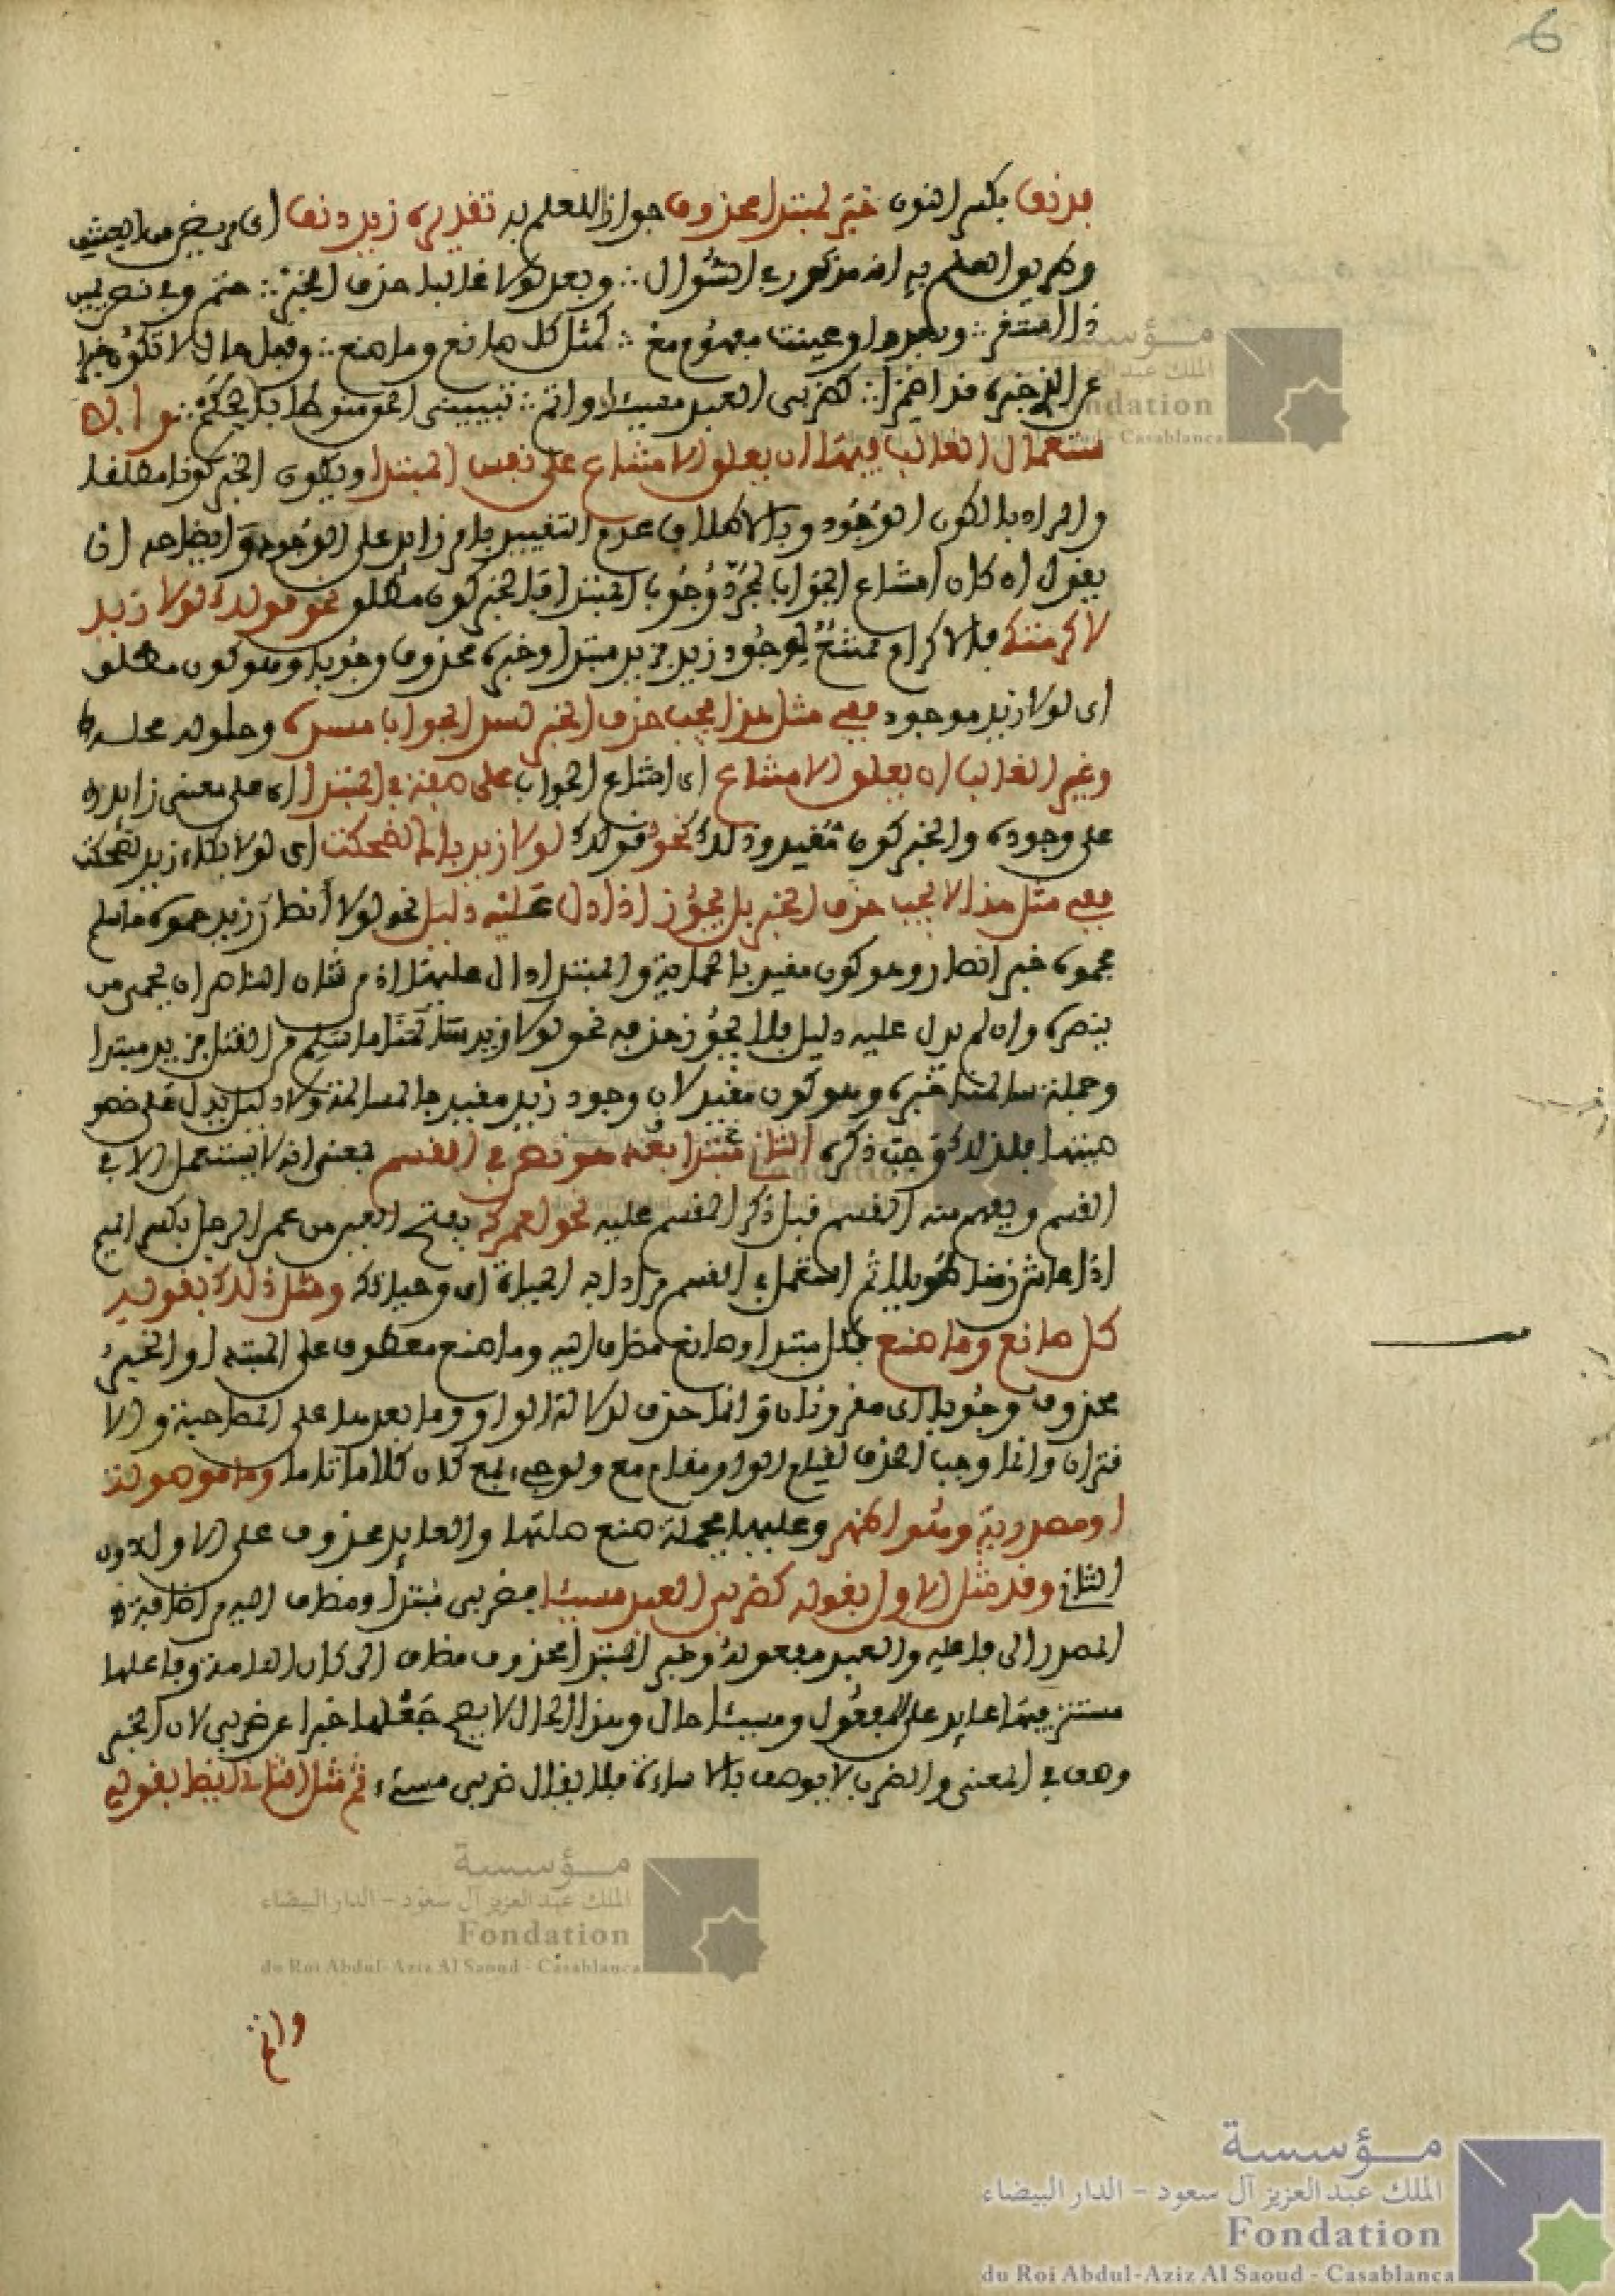 6
فدنف بكسر النون خبر لمبتدا محذوف جوازا للعلم به تقديره زيد دنف اى مريض من العشق
وطريق العلم به انه مذكور في السؤال ∴ وبعد لولا غالبا حذف الخبر ∴ حتم وفي نص يمين
ذا استقر ∴ وبعد واو عينت مفهوم مع ∴ كمثل كل صانع وما صنع ∴ وقبل حال لا تكون خبرا
عن الذي خبره قد اضمرا ∴ كضربي العبد مسيئا واتم ∴ تبييني الحق منوطا بالحكم ∴
ستعمال الغالب فيها ان يعلق الامتناع على نفس المبتدا ويكون الخبر كونا مطلقا
والمراد بالكون الوجود وبالاطلاق عدم التقييد بامر زايد على الوجود وايضاحه ان
يقول ان كان امتناع الجواب لمجرد وجوب المبتدا فالخبر كون مطلق نحو قولك لولا زيد
لاكرمتك فالاكرام ممتنع لوجود زيد فزيد مبتدا وخبره محذوف وجوبا وهو كون مطلق
اى لولا زيد موجود ففي مثل هذا يجب حذف الخبر لسد الجواب مسده وحلوله محله
وغير الغالب ان يعلق الامتناع اى امتناع الجواب على صفة في المبتدا اى على معنى زايد
على وجوده والخبر كون مقيد وذلك نحو قولك لولا زيد باك لضحكت اى لولا بكاء زيد لضحكت
ففي مثل هذا لا يجب حذف الخبر بل يجوز اذا دل عليه دليل نحو لولا أنصار زيد حموه ما سلم
فحموه خبر انصار وهو كون مقيد بالحماية والمبتدا دال عليها اذ من شان الناصر ان يحمي من
ينصره وان لم يدل عليه دليل فلا يجوز حذفه نحو لولا زيد سالمنا ما سلم من القتل فزيد مبتدا
وجملة سالمنا خبره وهو كون مقيد لان وجود زيد مقيد بالمسالمة ولا دليل يدل على خصو
صيتها فلذلك وجب ذكره الثاني مبتدا بعد هو نص في القسم بمعنى انه لا يستعمل الا في
القسم ويفهم منه القسم قبل ذكر المقسم عليه نحو لعمرك بفتح العين من عمر الرجل بكسر الميم
اذا عاش زمنا طويلا ثم استعمل في القسم مرادا به الحياة اى وحياتك ومثل ذلك بقوله
كل صانع وما صنع فكل مبتدا وصانع مضاف اليه وما صنع معطوف على المبتدا والخبر
محذوف وجوبا اى مقرونان وانما حذف لدلالة الواو وما بعدها على المصاحبة والا
قتران وانما وجب الحذف لقيام الواو مقام مع ولو جيء بمع كان كلاما تاما وما موصولة
او مصدرية وهو اظهر وعليهما فجملة صنع صلتها والعايد محذوف على الاول دون
الثاني وقد مثل الاول بقوله كضربي العبد مسيئا فضربي مبتدأ ومضاف اليه من اضافة
المصدر الى فاعله والعبد مفعوله وخبر المبتدا محذوف مضاف الى كان التامة وفاعلها
مستتر فيها عايد على المفعول ومسيئا حال وهذا الحال لا يصح جعلها خبرا عن ضربي لان الخبر
وصف في المعنى والضرب لا يوصف بالاساءة فلا يقال ضربي مسيء ثم مثل الثاني ايضا بقوله
واتم
مؤسسة
الملك عبد العزيز آل سعود - الدار البيضاء
Fondation
du Roi Abdul-Aziz Al Saoud - Casablanca